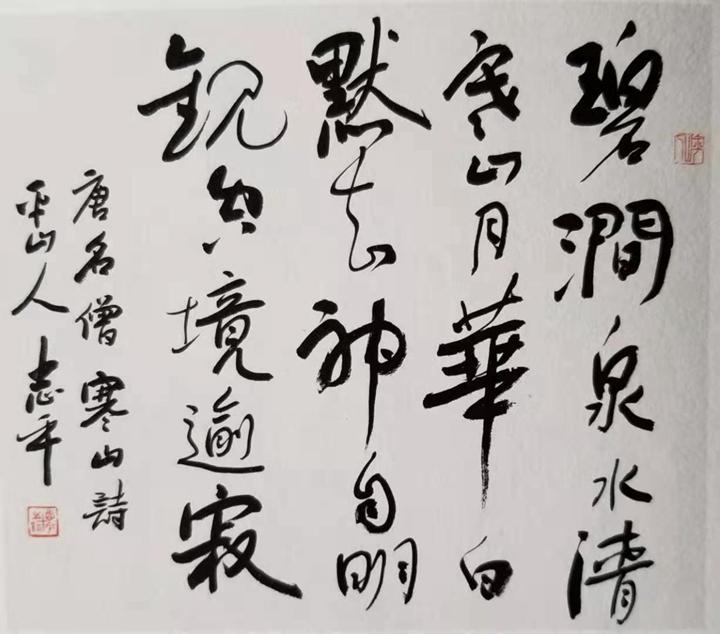 碧澗泉水清
寒山月華白
默知神自明
觀空境逾寂
唐名僧寒山詩
平山人志平